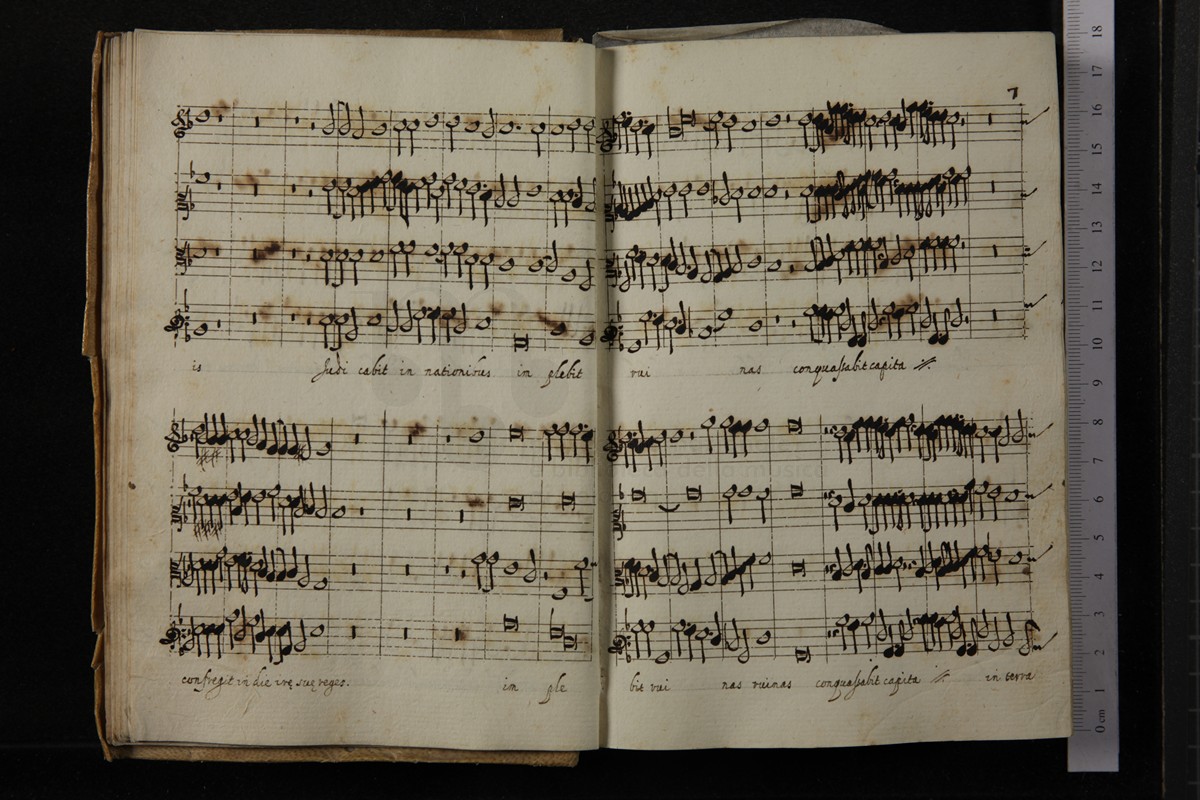 7
is Judi cabit in nationibus in plebit rui nas conquassabit capita
confregit in die irę suę reges. im ple bit rui nas ruinas conquassabit capita in terra
18
17
16
15
14
13
12
11
10
9
8
7
6
5
4
3
2
1
0 cm